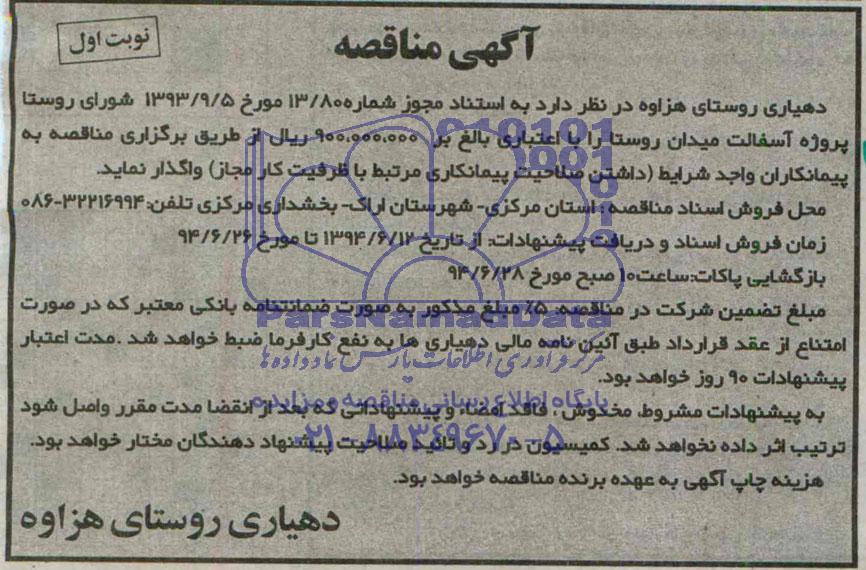 نوبت اول
آگهی مناقصه
دهیاری روستای هزاوه در نظر دارد به استناد مجوز شماره۱۳/۸۰ مورخ ۱۳۹۳/۹/۵ شورای روستا
پروژه آسفالت میدان روستا را با اعتباری بالغ بر ۹۰۰،۰۰۰،۰۰۰ ریال از طریق برگزاری مناقصه به
پیمانکاران واجد شرایط (داشتن صلاحیت پیمانکاری مرتبط با ظرفیت کار مجاز) واگذار نماید.
محل فروش اسناد مناقصه : استان مرکزی- شهرستان اراک- بخشداری مرکزی تلفن:۳۲۲۱۶۹۹۴-۰۸۶
زمان فروش اسناد و دریافت پیشنهادات: از تاریخ ۱۳۹۴/۶/۱۲ تا مورخ ۹۴/۶/۲۶
بازگشایی پاکات:ساعت۱۰ صبح مورخ ۹۴/۶/۲۸
مبلغ تضمین شرکت در مناقصه: ۵٪ مبلغ مذکور به صورت ضمانتنامه بانکی معتبر که در صورت
ParsNamadData
امتناع از عقد قرارداد طبق آئین نامه مالی دهیاری ها به نفع کارفرما ضبط خواهد شد .مدت اعتبار
مرکز فرآوری اطلاعات پارس نماد داده ها
پیشنهادات ۹۰ روز خواهد بود.
پایگاه اطلاع رسانی مناقصه و مزایده
به پیشنهادات مشروط، مخدوش ، فاقد امضاء و پیشنهاداتی که بعد از انقضا مدت مقرر واصل شود
ترتیب اثر داده نخواهد شد. کمیسیون در رد و تائید صلاحیت پیشنهاد دهندگان مختار خواهد بود.
۰۲۱-۸۸۳۴۹۶۷۰-۵
هزینه چاپ آگهی به عهده برنده مناقصه خواهد بود.
دهیاری روستای هزاوه